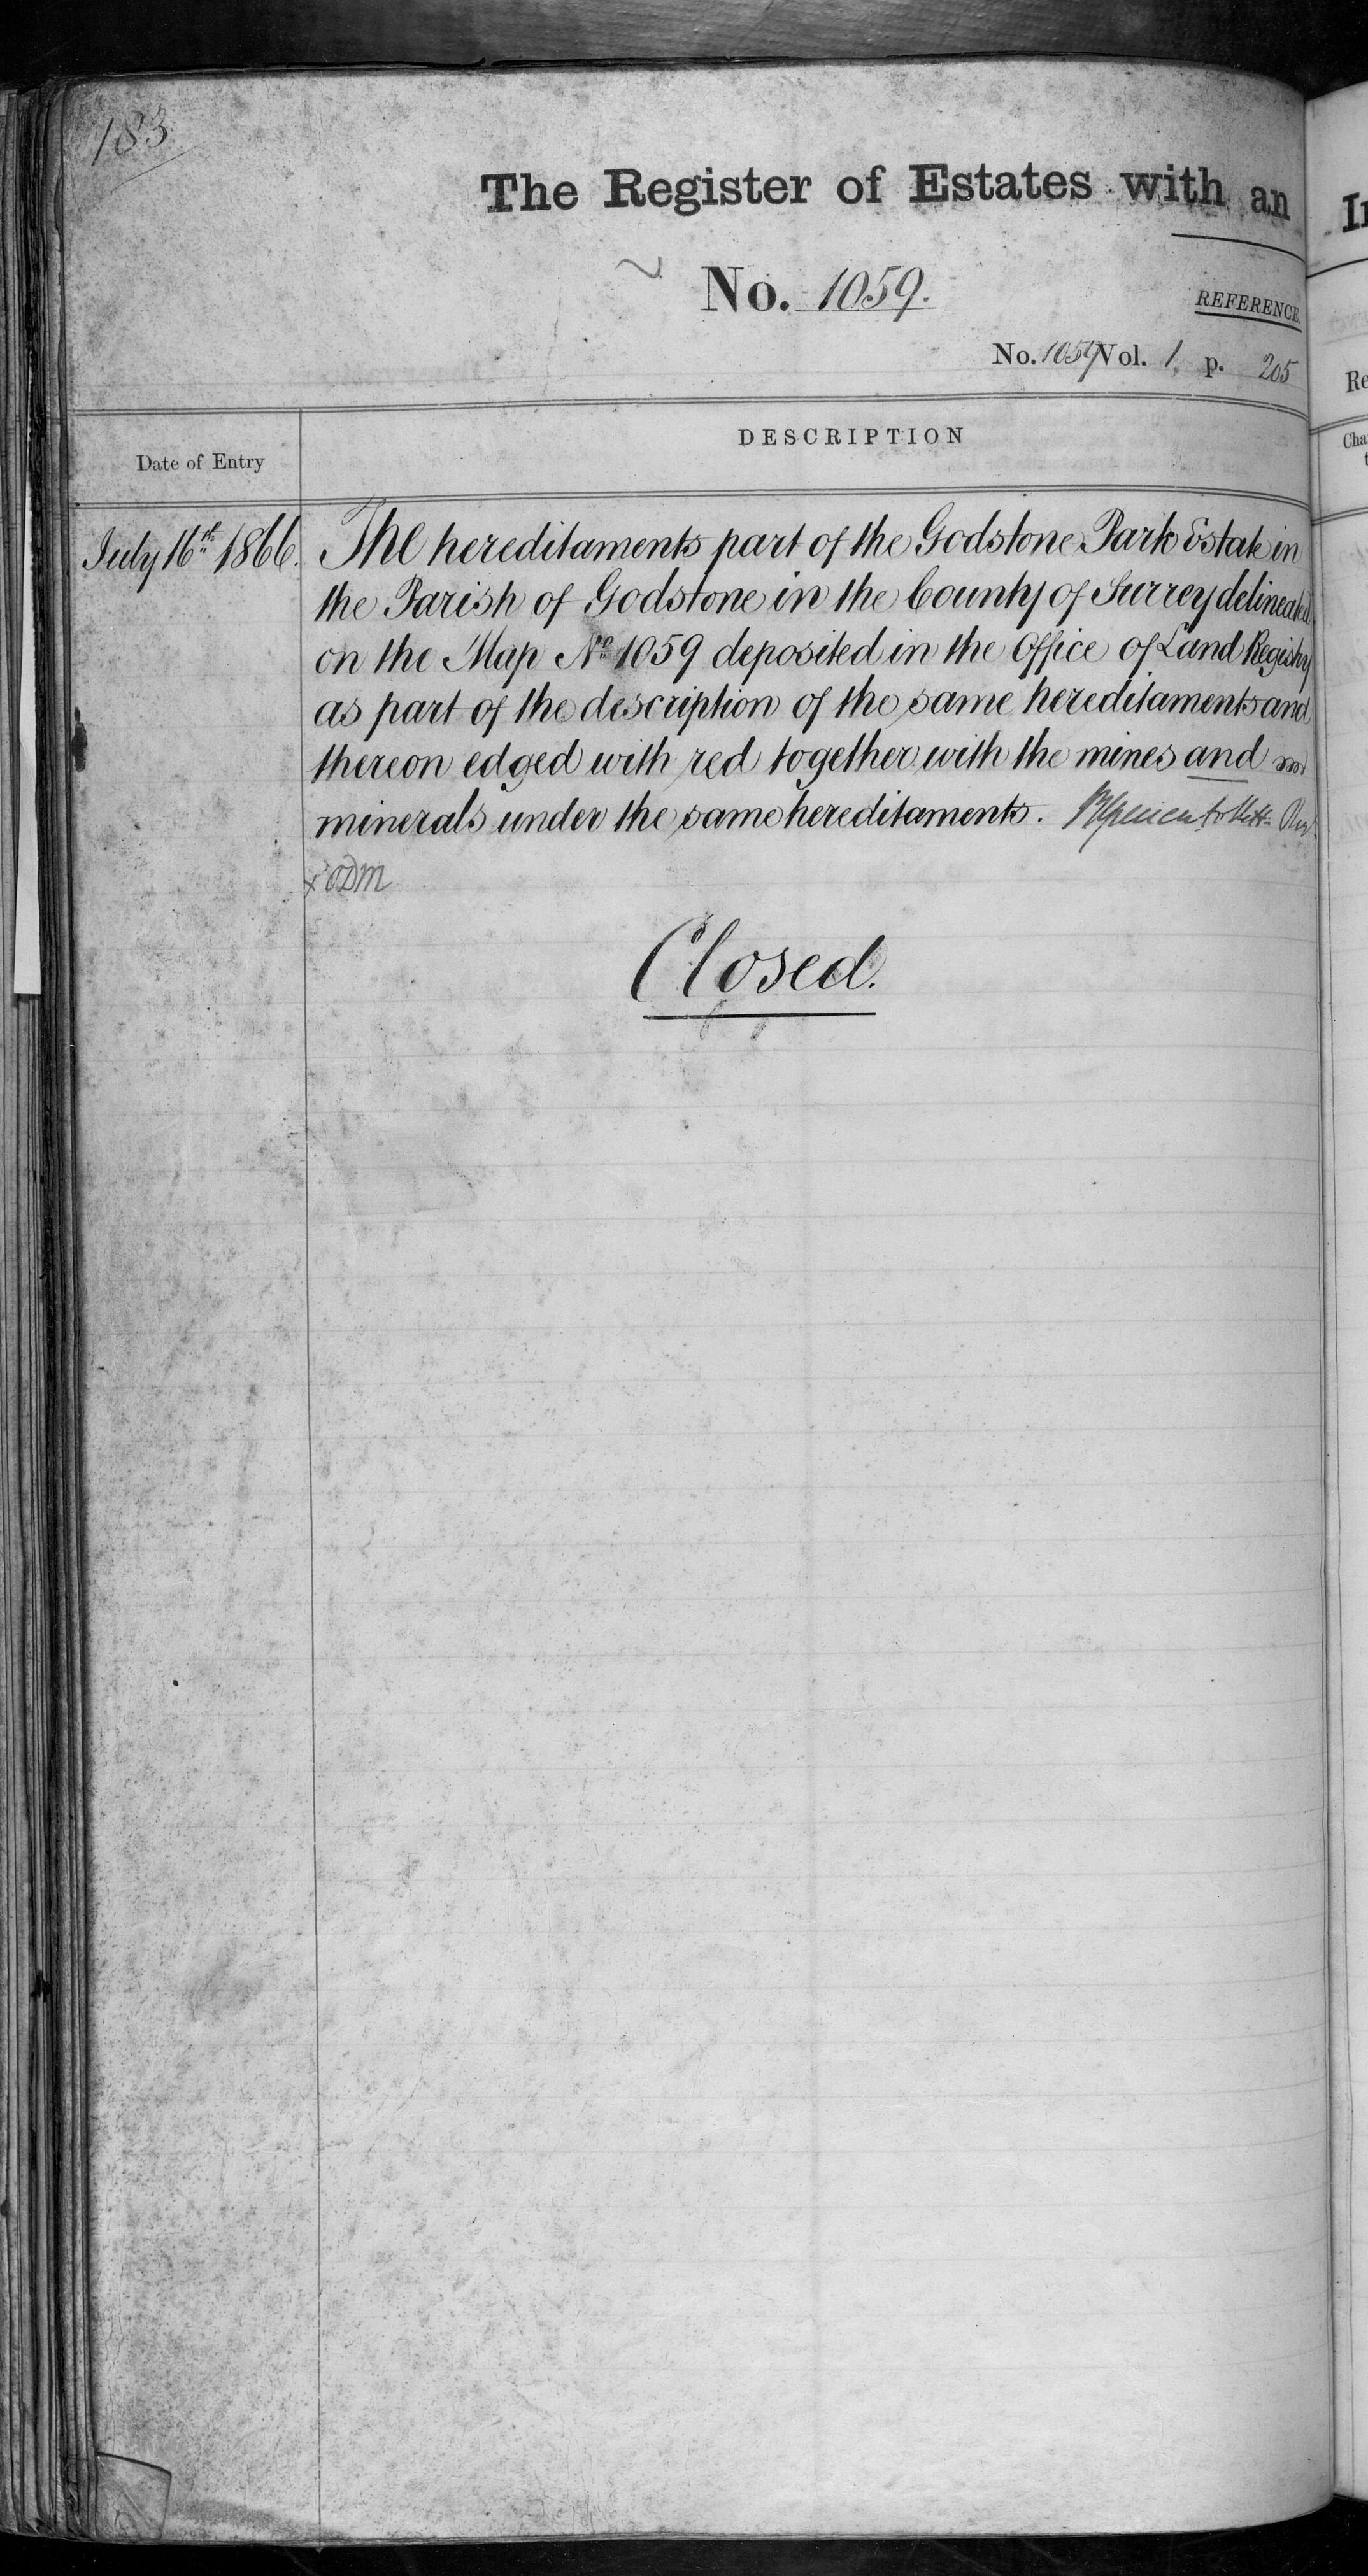 183
The Register of Estates with an
No. 1059.
REFERENCE.
No. 1059 Vol. 1. p. 205
Date of Entry
DESCRIPTION
July 16th 1866.
The hereditaments part of the Godstone Park Estate in
the Parish of Godstone in the County of Surrey delineated
on the Map No. 1059 deposited in the Office of Land Registry
as part of the description of the same hereditaments and
thereon edged with red together with the mines and
minerals under the same hereditaments.
Closed.